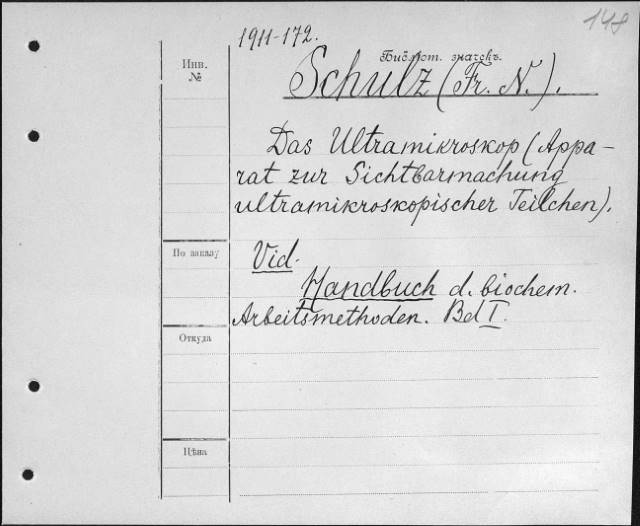 148
1911-172.
Инв.
№
Библіот. значекъ.
Schulz (Fr. N.).
Das Ultramikroskop (Appa-
rat zur Sichtbarmachung
ultramikroskopischer Teilchen).
По заказу
Vid.
Handbuch d. biochem.
Arbeitsmethoden. Bd I.
Откуда
Цѣна